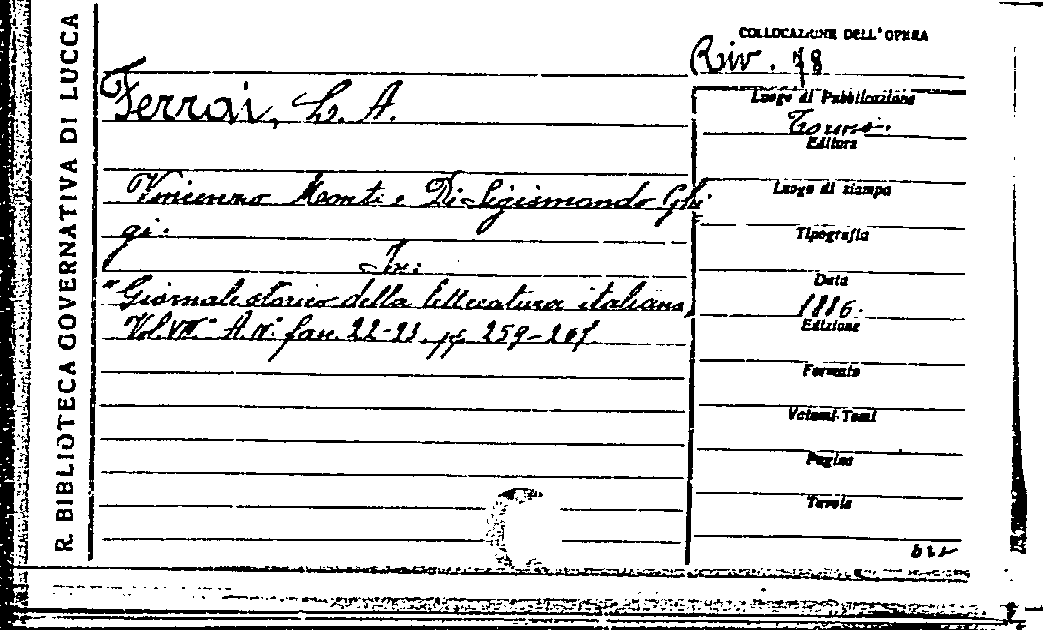 R. BIBLIOTECA GOVERNATIVA DI LUCCA
COLLOCAZIONE DELL'OPERA
Riv. 78
Ferrai, L. A.
Luogo di Pubblicazione
Torino.
Editore
Vincenzo Monti e Di Sigismondo Ghi
gi.
Luogo di stampa
Tipografia
In:
"Giornale storico della letteratura italiana"
Data
1886.
Vol. VII° A. IV° fasc. 22-23, pp. 259-261.
Edizione
Formato
Volumi-Tomi
Pagine
Tavole